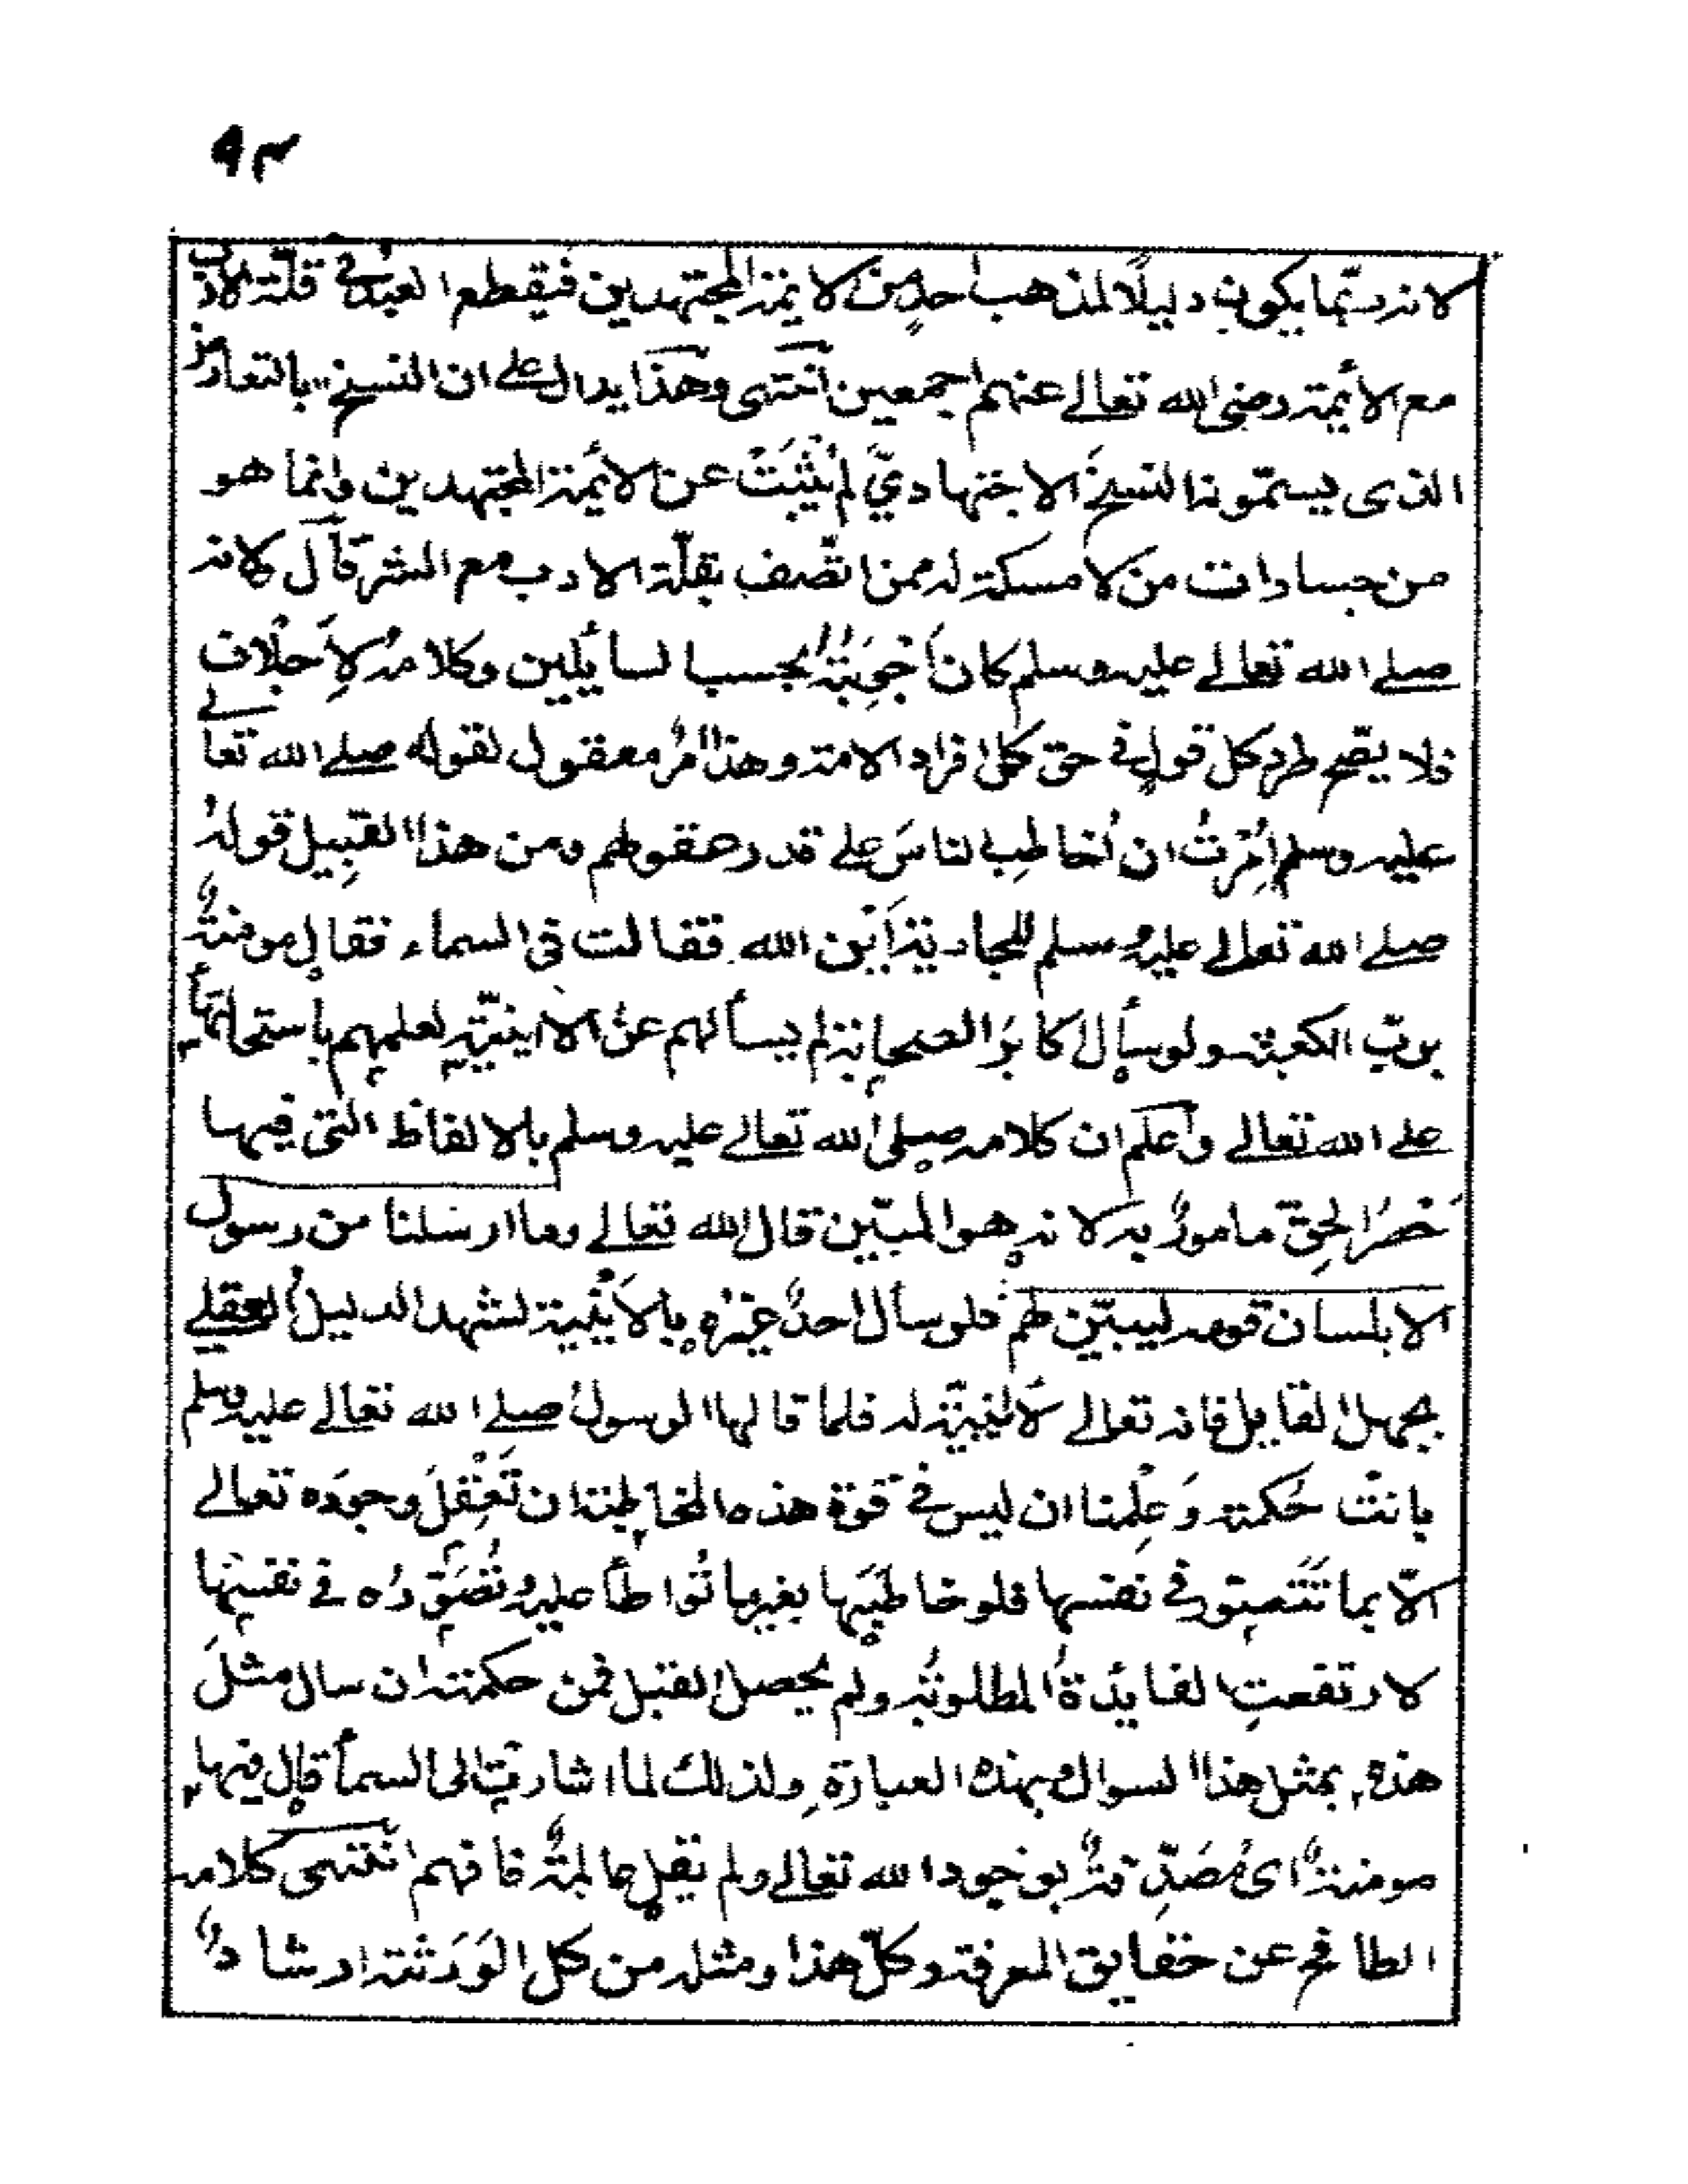 ٩٣
لانه ربّما يكون دليلًا لمذهب احدٍ من الايمة المجتهدين فيقطع العبد في قلّة الادب
مع الأيمة رضي الله تعالى عنهم اجمعين انتهى وهذا يدل على ان النسخ بالتعارض
الذى يسمّونه النسخَ الاجتهاديَّ لم يَثْبُتْ عن الايمّة المجتهدين وانما هو
من جسارات من لا مسكة له ممن اتّصف بقلّة الادب مع الشرع قال لانه
صلى الله تعالى عليه وسلم كان اَجْوِبَتُهُ بحسب السائلين وكلامه لِاَجْلاف
فلا يصح طرد كل قولٍ في حق كل افراد الامة وهذا امرٌ معقول لقوله صلى الله تعالى
عليه وسلم اُمِرْتُ ان اُخاطِب الناسَ على قدر عقولهم ومن هذا القَبِيل قولهُ
صلى الله تعالى عليه وسلم للجارية اَيْنَ الله فقالت في السماء فقال مومنةٌ
بربّ الكعبة ولو سأل اكابرَ الصحابة لم يسألهم عن الاينيّة لعلمهم باستحالتها
على الله تعالى واعلم ان كلامه صلى الله تعالى عليه وسلم بالالفاظ التى فيها
حَصْرُ الحقّ مامورٌ به لانه هو المبيّن قال الله تعالى وما ارسلنا من رسول
الا بلسان قومه ليبيّن لهم فلو سأل احدٌ غيرُه بالاَيْنية لشهد الدليلُ العقلي
بجهل القايل فانه تعالى لا اينيّة له فلما قالها الرسولُ صلى الله تعالى عليه وسلم
بانتْ حَكمته وَعلِمنا ان ليس في قوة هذه المخاطبة ان تَعْقِلَ وجودَه تعالى
الّا بما تَتَصوّر في نفسها فلو خاطبَها بغير ما تُواطأ عليه وتُصَوِّرُه في نفسها
لارتفعتِ الفايدةُ المطلوبةُ ولم يحصل القبل فمن حكمته ان سال مثلَ
هذه بمثل هذا السوال وبهذه العبارة ولذلك لما اشارت الى السمأ قال فيها
مومنةٌ اىْ مُصَدِّقةٌ بوجود الله تعالى ولم يقل عالمةٌ فافهم انتهى كلامه
الطافح عن حقايق المعرفة وكلّ هذا ومثله من كل الوَرَثة ارشادٌ